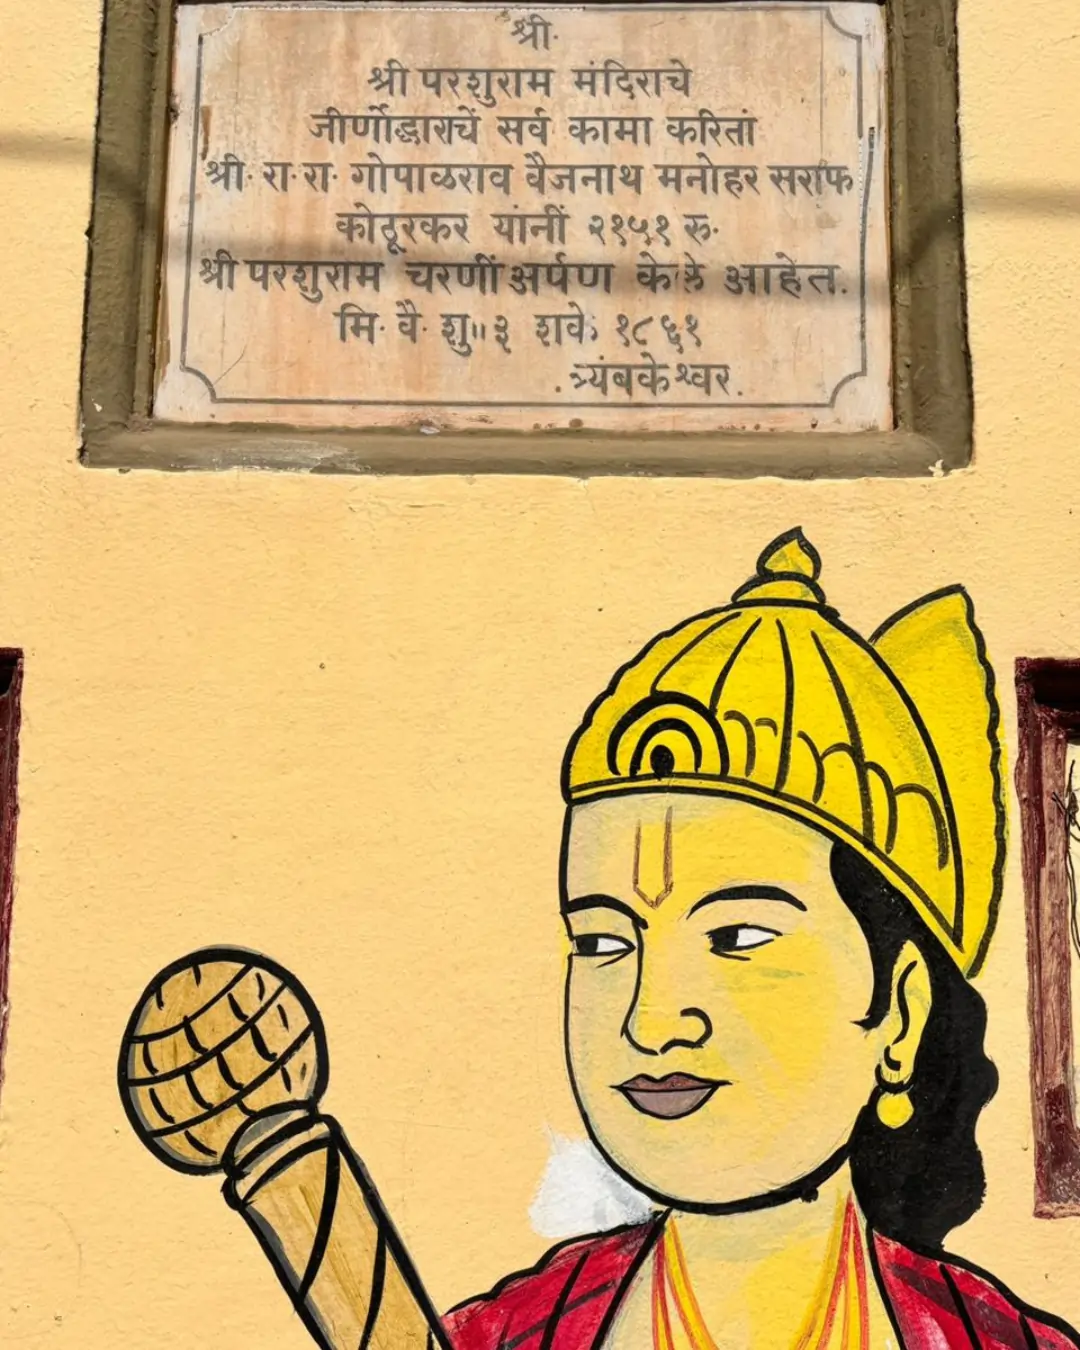 श्री.
श्री परशुराम मंदिराचे
जीर्णोद्धाराचें सर्व कामा करितां
श्री. रा. रा. गोपाळराव वैजनाथ मनोहर सराफ
कोठूरकर यांनीं २१५१ रु.
श्री परशुराम चरणीं अर्पण केले आहेत.
मि. वै. शु॥ ३ शके १८६१
त्र्यंबकेश्वर.